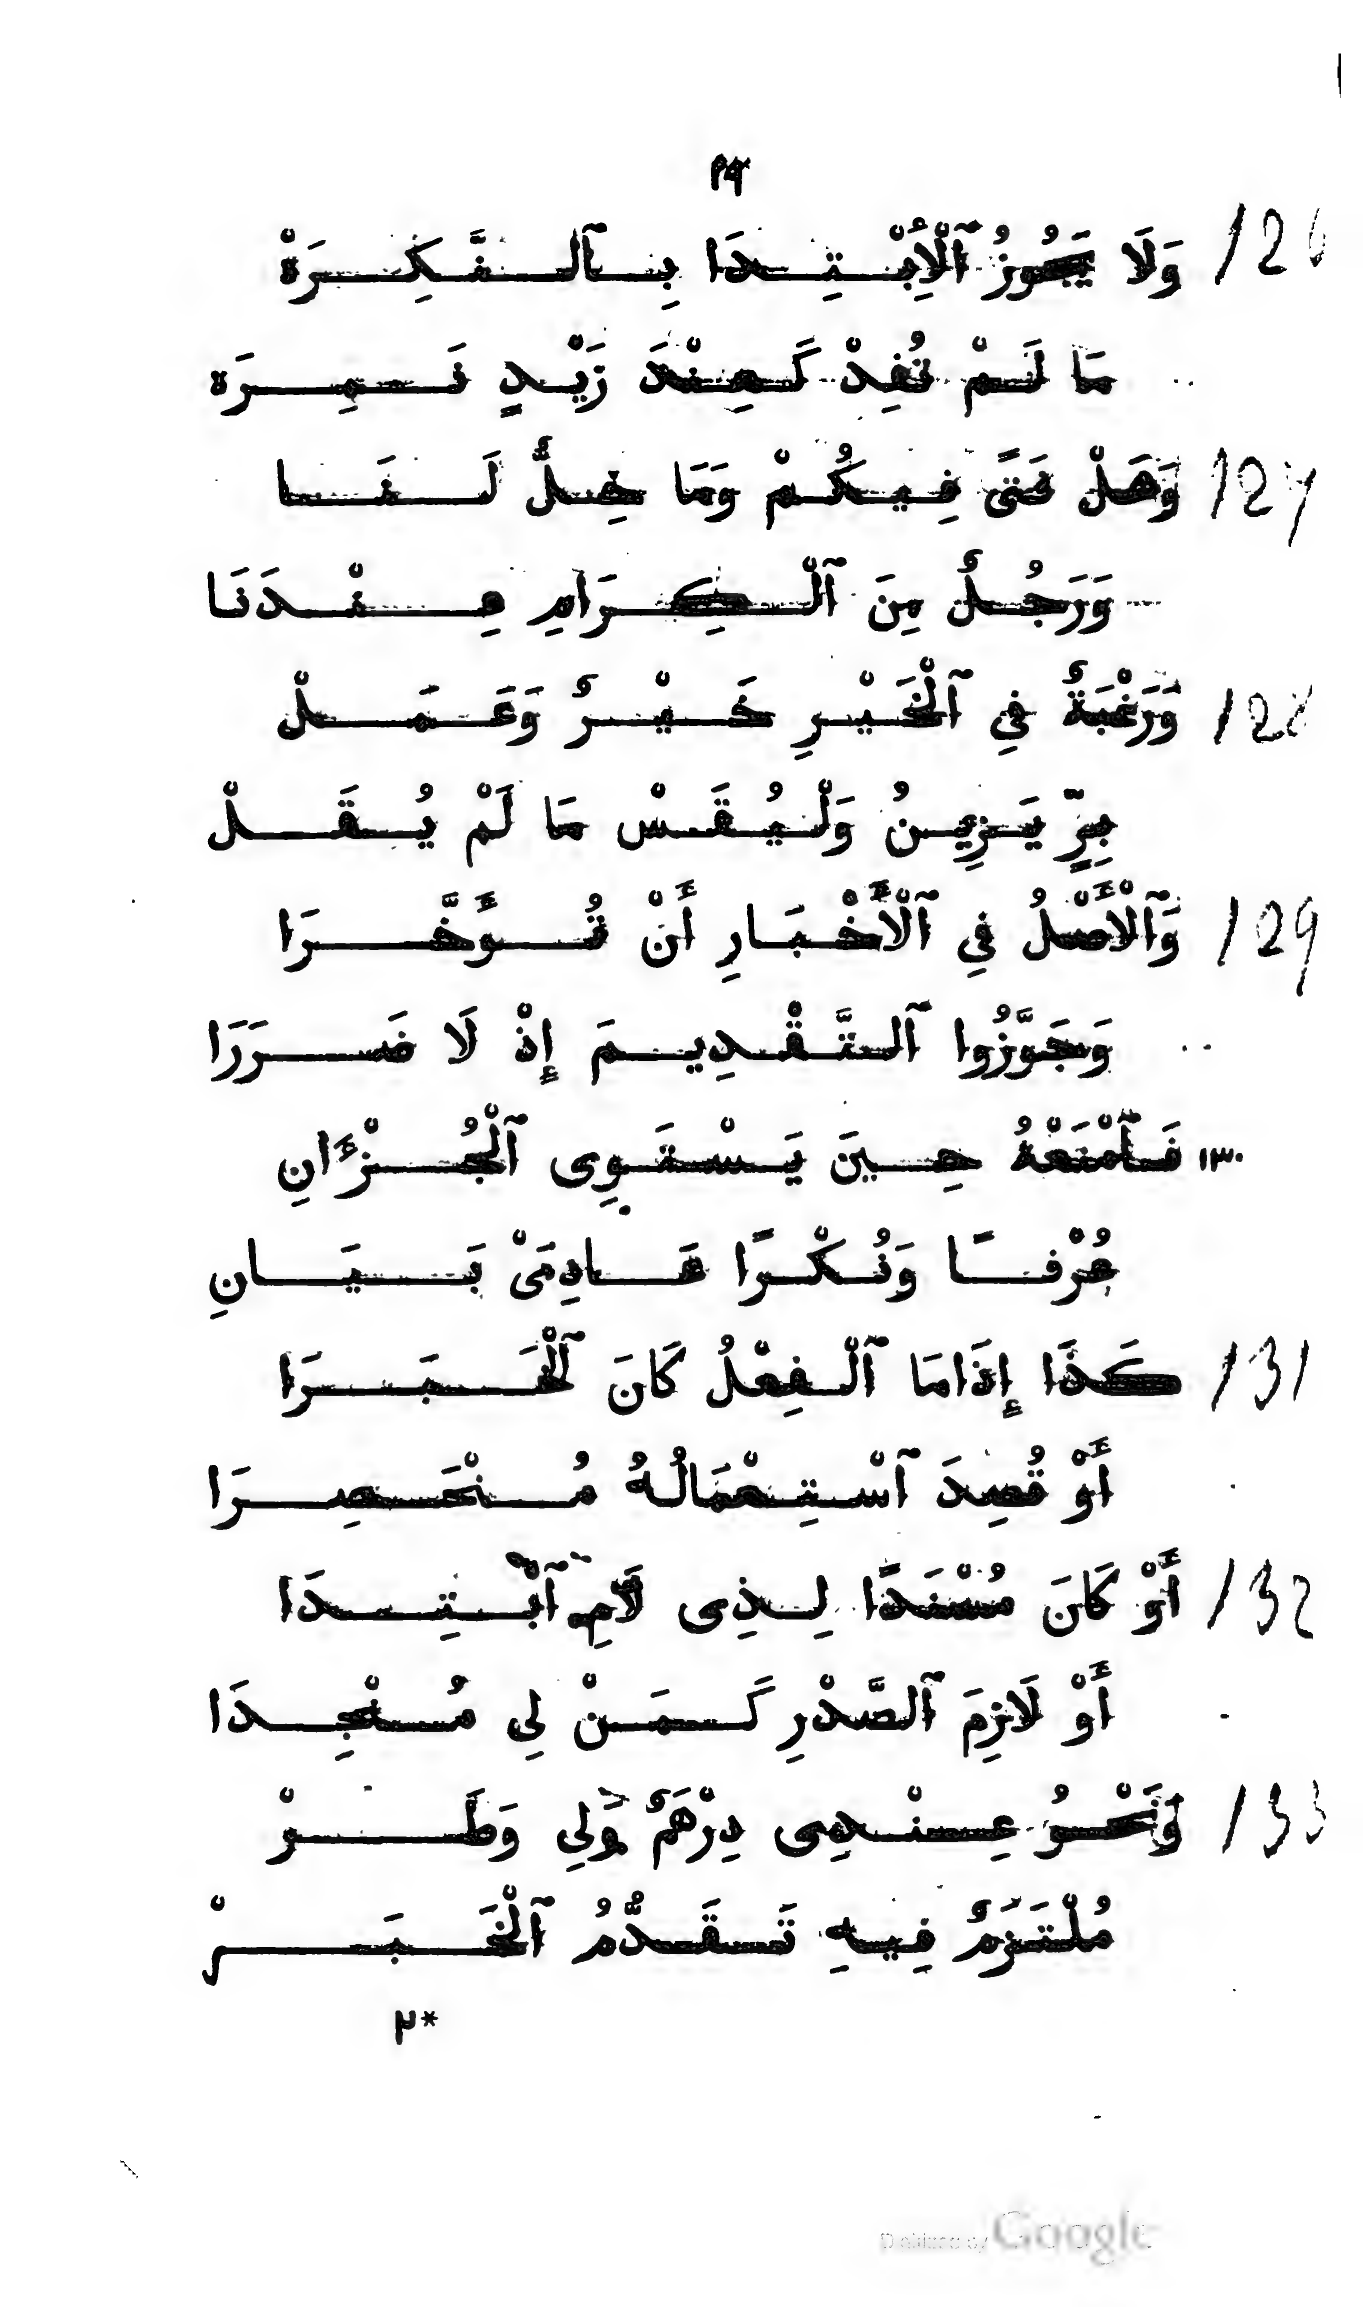 وَلَا يَجُوزُ ٱلْإِبْتِدَا بِٱلنَّكِرَةْ 126
مَا لَمْ تُفِدْ كَعِنْدَ زَيْدٍ نَمِرَه
وَهَلْ فَتًى فِيكُمْ وَمَا خِلٌّ لَنَا 127
وَرَجُلٌ مِنَ ٱلْكِرَامِ عِنْدَنَا
وَرَغْبَةٌ فِي ٱلْخَيْرِ خَيْرٌ وَعَمَلْ 128
بِرٍّ يَزِينُ وَلْيُقَسْ مَا لَمْ يُقَلْ
وَٱلْأَصْلُ فِي ٱلْأَخْبَارِ أَنْ تُؤَخَّرَا 129
وَجَوَّزُوا ٱلتَّقْدِيمَ إِذْ لَا ضَرَرَا
فَٱمْنَعْهُ حِينَ يَسْتَوِى ٱلْجُزْءَانِ ١٣٠
عُرْفًا وَنُكْرًا عَادِمَىْ بَيَانِ
كَذَا إِذَامَا ٱلْفِعْلُ كَانَ ٱلْخَبَرَا 131
أَوْ قُصِدَ ٱسْتِعْمَالُهُ مُنْحَصِرَا
أَوْ كَانَ مُسْنَدًا لِذِى لَامِ ٱبْتِدَا 132
أَوْ لَازِمَ ٱلصَّدْرِ كَمَنْ لِي مُنْجِدَا
وَنَحْوُ عِنْدِى دِرْهَمٌ وَلِي وَطَرْ 133
مُلْتَزَمٌ فِيهِ تَقَدُّمُ ٱلْخَبَرْ
٢*
Digitized by Google